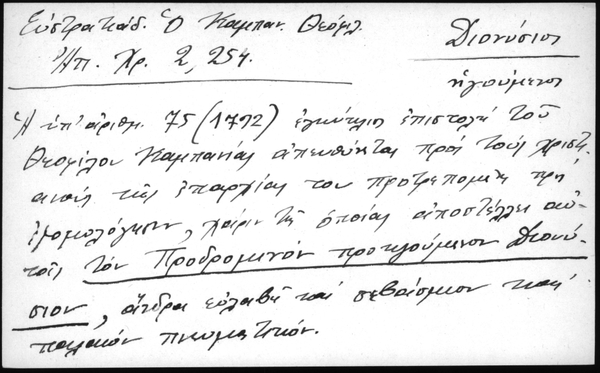 Εὐστρατιάδ. Ὁ Καμπαν. Θεόφιλ.
Ἠπ. Χρ. 2, 254.
Διονύσιος
ἡγούμενος
Ἡ ὑπ' ἀριθμ. 75 (1792) ἐγκύκλιος ἐπιστολὴ τοῦ
Θεοφίλου Καμπανίας ἀπευθύνεται πρὸς τοὺς χριστι-
ανοὺς τῆς ἐπαρχίας του προτρεπομένη πρὸς
ἐξομολόγησιν, χάριν τῆς ὁποίας ἀποστέλλει αὐ-
τοῖς τὸν Προδρομηνὸν προηγούμενον Διονύ-
σιον, ἄνδρα εὐλαβῆ καὶ σεβάσμιον καὶ
παλαιὸν πνευματικόν.